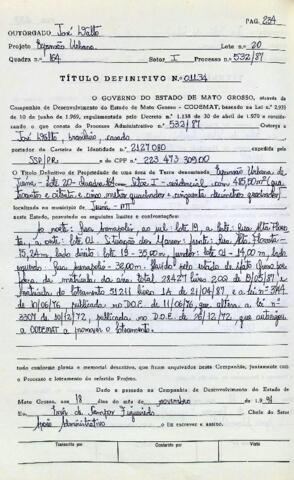 PAG. 234
OUTORGADO José Watto
Projeto Expansão Urbana Lote n.o 20
Quadra n.o 164 Setor I Processo n.o 532/87
TÍTULO DEFINITIVO N.o 01134
O GOVERNO DO ESTADO DE MATO GROSSO, através da
Companhia de Desenvolvimento do Estado de Mato Grosso - CODEMAT, baseado na Lei n.o 2.935
de 10 de junho de 1.969, regulamentada pelo Decreto n.o 1.138 de 30 de abril de 1.970 e considerando
o que consta do Processo Administrativo n.o 532/87 Outorga a
José Watto, brasileiro, casado
portador da Carteira de Identidade n.o 2127080
SSP/PR e do CPF n.o 223 473 309.00
O Título Definitivo de Propriedade de uma área de Terra denominada Expansão Urbana de
Juína - lote 20 - Quadra 164 - Setor I - residencial, com 485,00m² (quatrocentos
e oitenta e cinco metros quadrados
no município de Juína - MT
neste Estado, possuindo os seguintes limites e confrontações:
ao norte: Rua ao sul: lote 19, a leste: Rua Alta Floresta,
a oeste: lote 01. Situação dos Marcos: frente: Rua Alta Floresta -
15,24m, lado direito: lote 19 - 35,00m, fundos: lote 01 - 14,00m, lado
esquerdo: Rua - 32,00m. pelo estado de Mato Grosso
matrícula da área total 28427 livro 209 de 19/05/87 e
matrícula do loteamento 31211 livro de 21/04/87, e a lei nº
de 10/06/76, publicada no D.O.E. de 11/06/76, que altera a lei nº
3307 de 10/12/72, publicada no D.O.E. de 20/12/72, que autorizou
a CODEMAT a promover o loteamento.
tudo conforme planta e memorial descritivo, que ficam arquivados nesta Companhia, juntamente com
o Processo e loteamento do referido Projeto.
Dado e passado na Companhia de Desenvolvimento do Estado de
Mato Grosso, aos 18 dias do mês de novembro de 1.991
Eu, de Campos Figueiredo Chefe do Setor
Apoio Administrativo o fiz escrever e assino.
Transcrito por
Conferido por
Visto